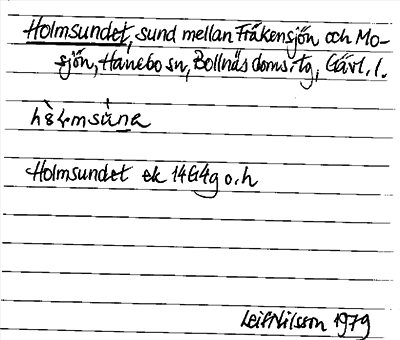 Holmsundet, sund mellan Fräkensjön och Mo-
sjön, Hanebo sn, Bollnäs doms.tg, Gävl. l.
Holmsundet ek 14G4g o.h
Leif Nilsson 1979